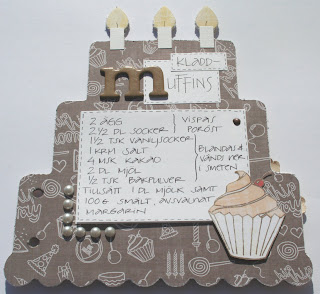 KLADD-
mUFFINS
2 ÄGG
2½ DL SOCKER
VISPAS
PORÖST
1½ TSK VANILJSOCKER
1 KRM SALT
4 MSK KAKAO
2 DL MJÖL
½ TSK BAKPULVER
BLANDAS Å
VÄNDS NER
I SMETEN
TILLSÄTT 1 DL MJÖLK SAMT
100 G SMÄLT, AVSVALNAT
MARGARIN